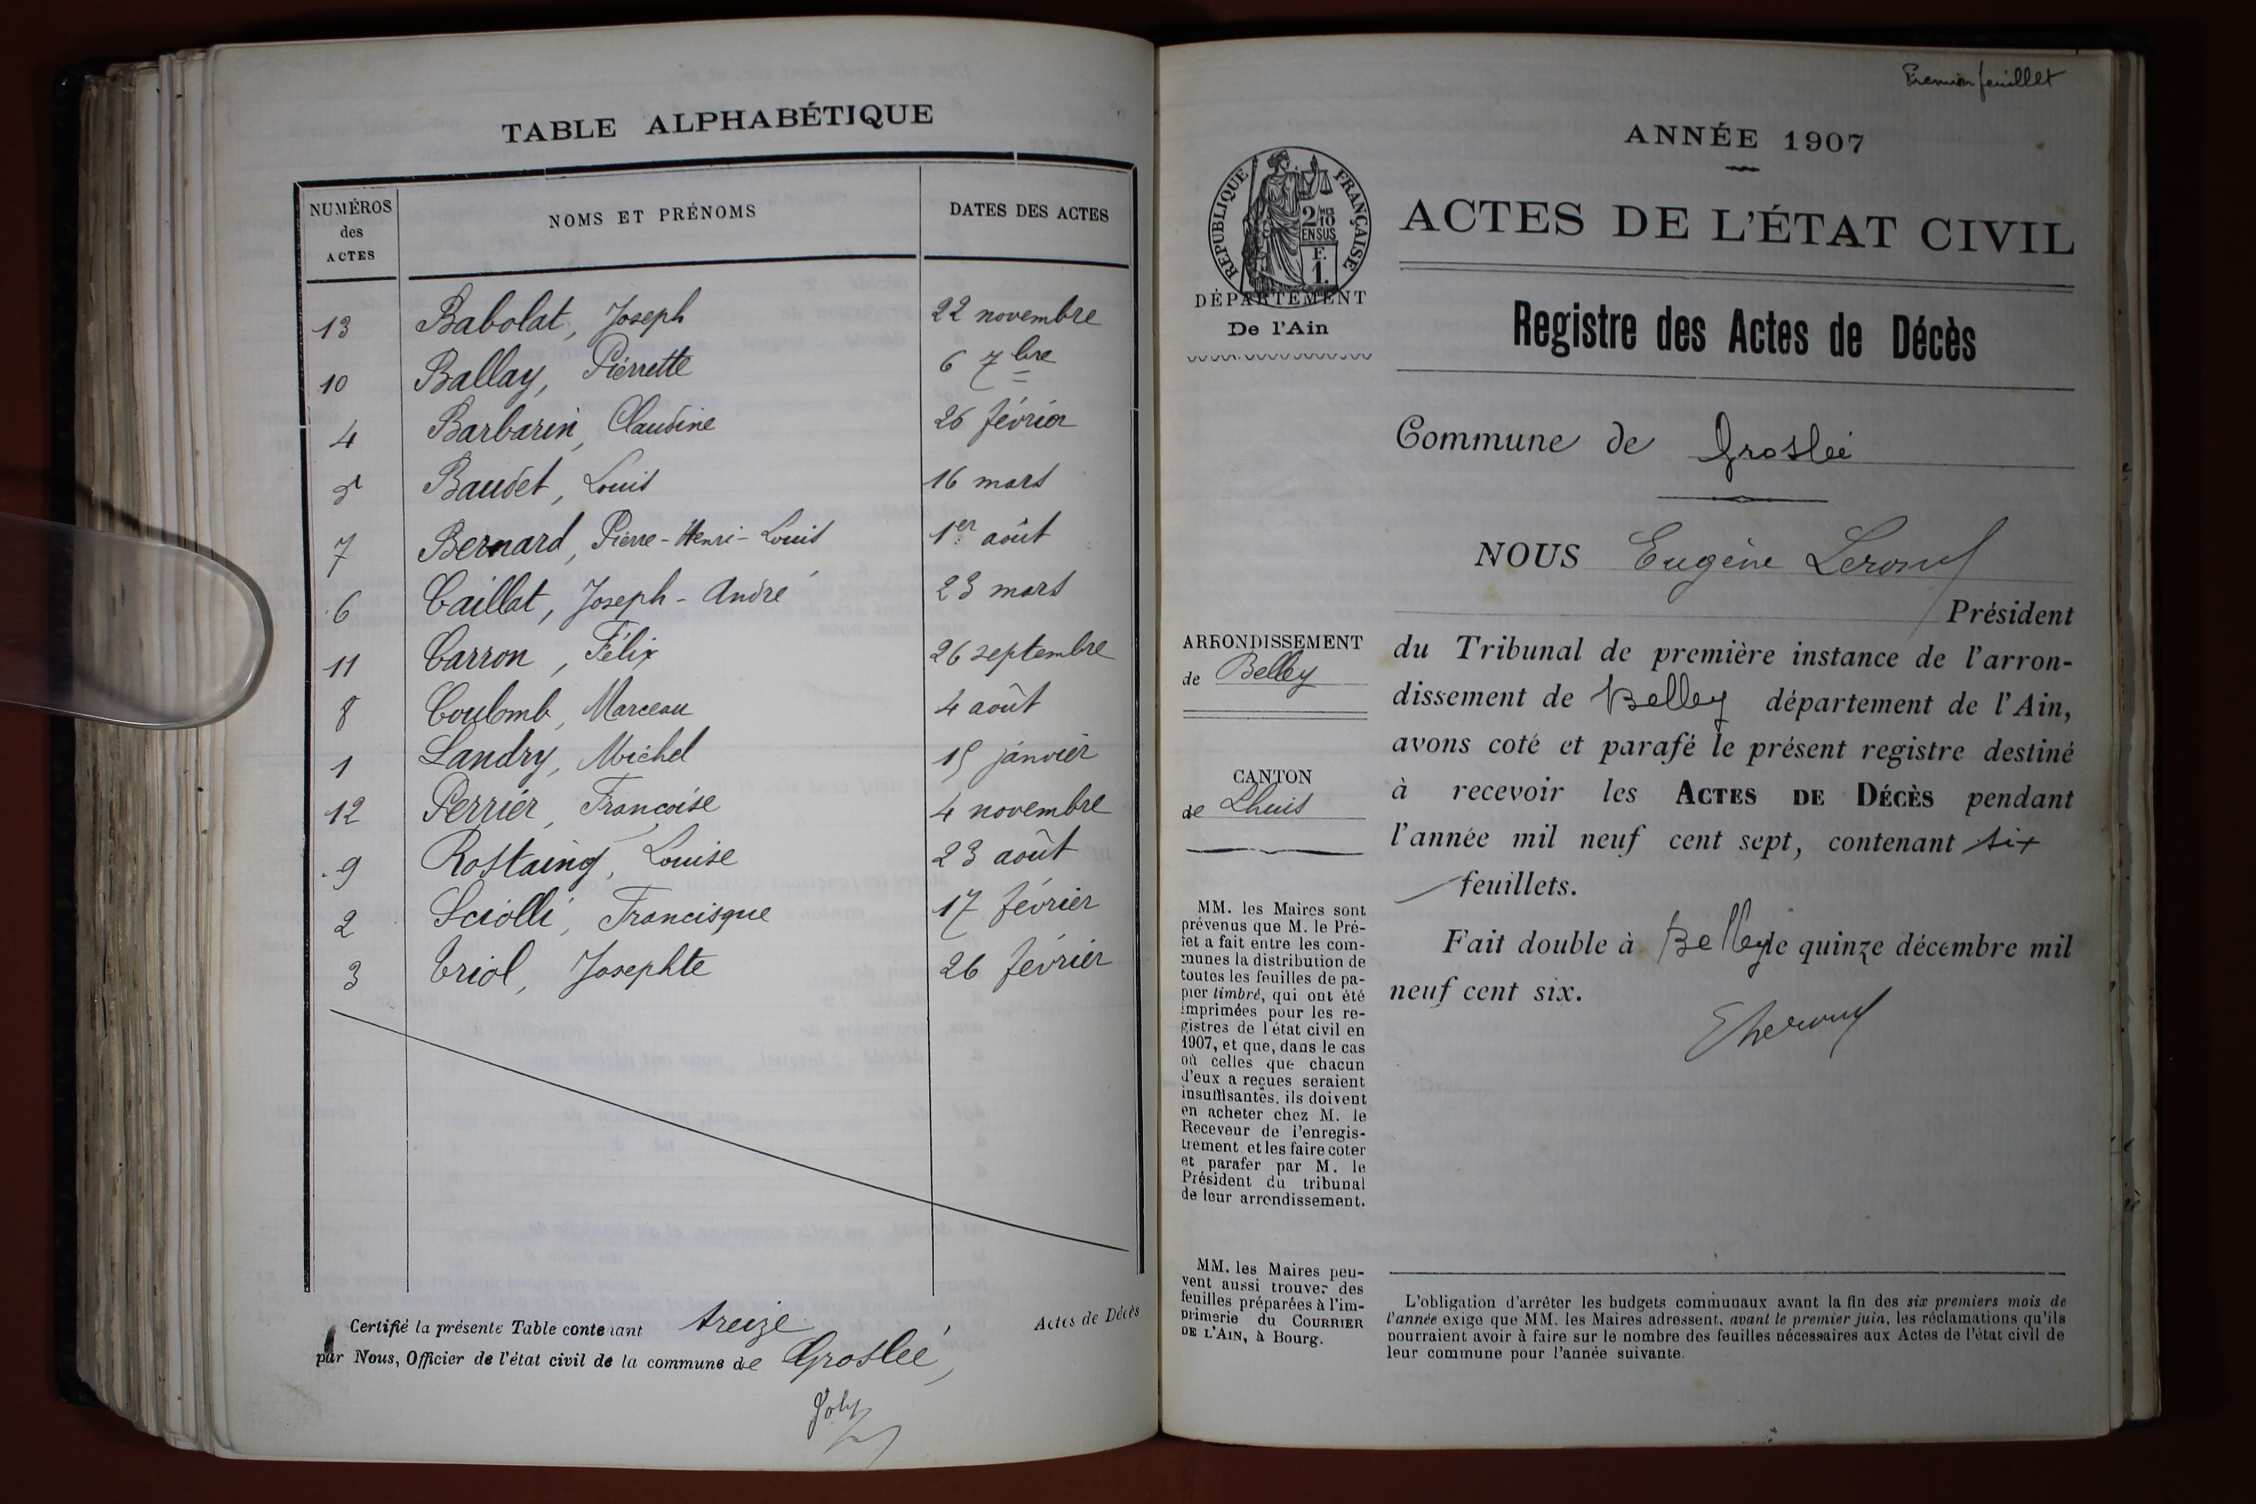 TABLE ALPHABÉTIQUE
NUMÉROS des ACTES NOMS ET PRÉNOMS DATES DES ACTES
13 Babolat, Joseph 22 novembre
10 Ballay, Pierrette 6 7bre
4 Barbarin, Claudine 26 février
5 Baudet, Louis 16 mars
7 Bernard, Pierre-Henri-Louis 1er août
6 Caillat, Joseph-André 23 mars
11 Carron, Félix 26 septembre
8 Coulomb, Marceau 4 août
1 Landry, Michel 15 janvier
12 Perrier, Françoise 4 novembre
9 Rostaing, Louise 23 août
2 Sciolli, Francisque 17 février
3 Triol, Josephte 26 février
Certifié la présente Table contenant treize Actes de Décès
par Nous, Officier de l'état civil de la commune de Groslée,
Premier feuillet
ANNÉE 1907
RÉPUBLIQUE FRANÇAISE
2/10 MES
EN SUS
F.
1.
DÉPARTEMENT
De l'Ain
ACTES DE L'ÉTAT CIVIL
Registre des Actes de Décès
Commune de Groslée
NOUS Eugène
Président
du Tribunal de première instance de l'arron-
dissement de Belley département de l'Ain,
avons coté et parafé le présent registre destiné
à recevoir les ACTES DE DÉCÈS pendant
l'année mil neuf cent sept, contenant six
feuillets.
Fait double à Belley le quinze décembre mil
neuf cent six.
ARRONDISSEMENT
de Belley
CANTON
de Lhuis
MM. les Maires sont
prévenus que M. le Pré-
fet a fait entre les com-
munes la distribution de
toutes les feuilles de pa-
pier timbré, qui ont été
imprimées pour les re-
gistres de l'état civil en
1907, et que, dans le cas
où celles que chacun
d'eux a reçues seraient
insuffisantes, ils doivent
en acheter chez M. le
Receveur de l'enregis-
trement et les faire coter
et parafer par M. le
Président du tribunal
de leur arrondissement.
MM. les Maires peu-
vent aussi trouver des
feuilles préparées à l'im-
primerie du COURRIER
DE L'AIN, à Bourg.
L'obligation d'arrêter les budgets communaux avant la fin des six premiers mois de
l'année exige que MM. les Maires adressent, avant le premier juin, les réclamations qu'ils
pourraient avoir à faire sur le nombre des feuilles nécessaires aux Actes de l'état civil de
leur commune pour l'année suivante.